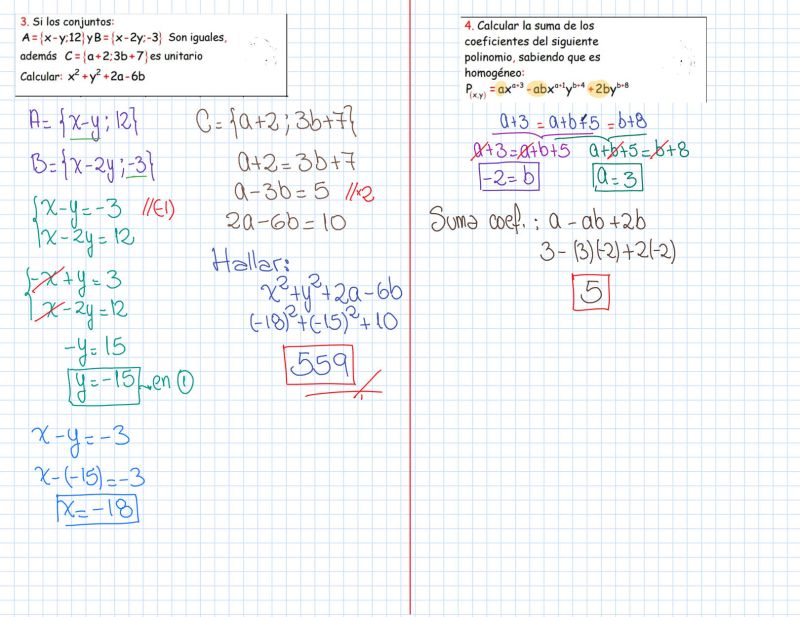 3. Si los conjuntos:
A = {x-y;12} y B = {x-2y;-3} Son iguales,
además C = {a+2;3b+7} es unitario
Calcular: x²+y²+2a-6b
A = {x-y; 12}
B = {x-2y; -3}
{x-y = -3 //(-1)
{x-2y = 12
{-x+y = 3
{x-2y = 12
-y = 15
y = -15 → en ①
x-y = -3
x-(-15) = -3
x = -18
C = {a+2; 3b+7}
a+2 = 3b+7
a-3b = 5 //×2
2a-6b = 10
Hallar:
x²+y²+2a-6b
(-18)²+(-15)²+10
559
4. Calcular la suma de los
coeficientes del siguiente
polinomio, sabiendo que es
homogéneo:
P(x,y) = axᵃ⁺³ - abxᵃ⁺¹yᵇ⁺⁴ + 2byᵇ⁺⁸
a+3 = a+b+5 = b+8
a+3 = a+b+5 a+b+5 = b+8
-2 = b a = 3
Suma coef.: a - ab + 2b
3 - (3)(-2) + 2(-2)
5